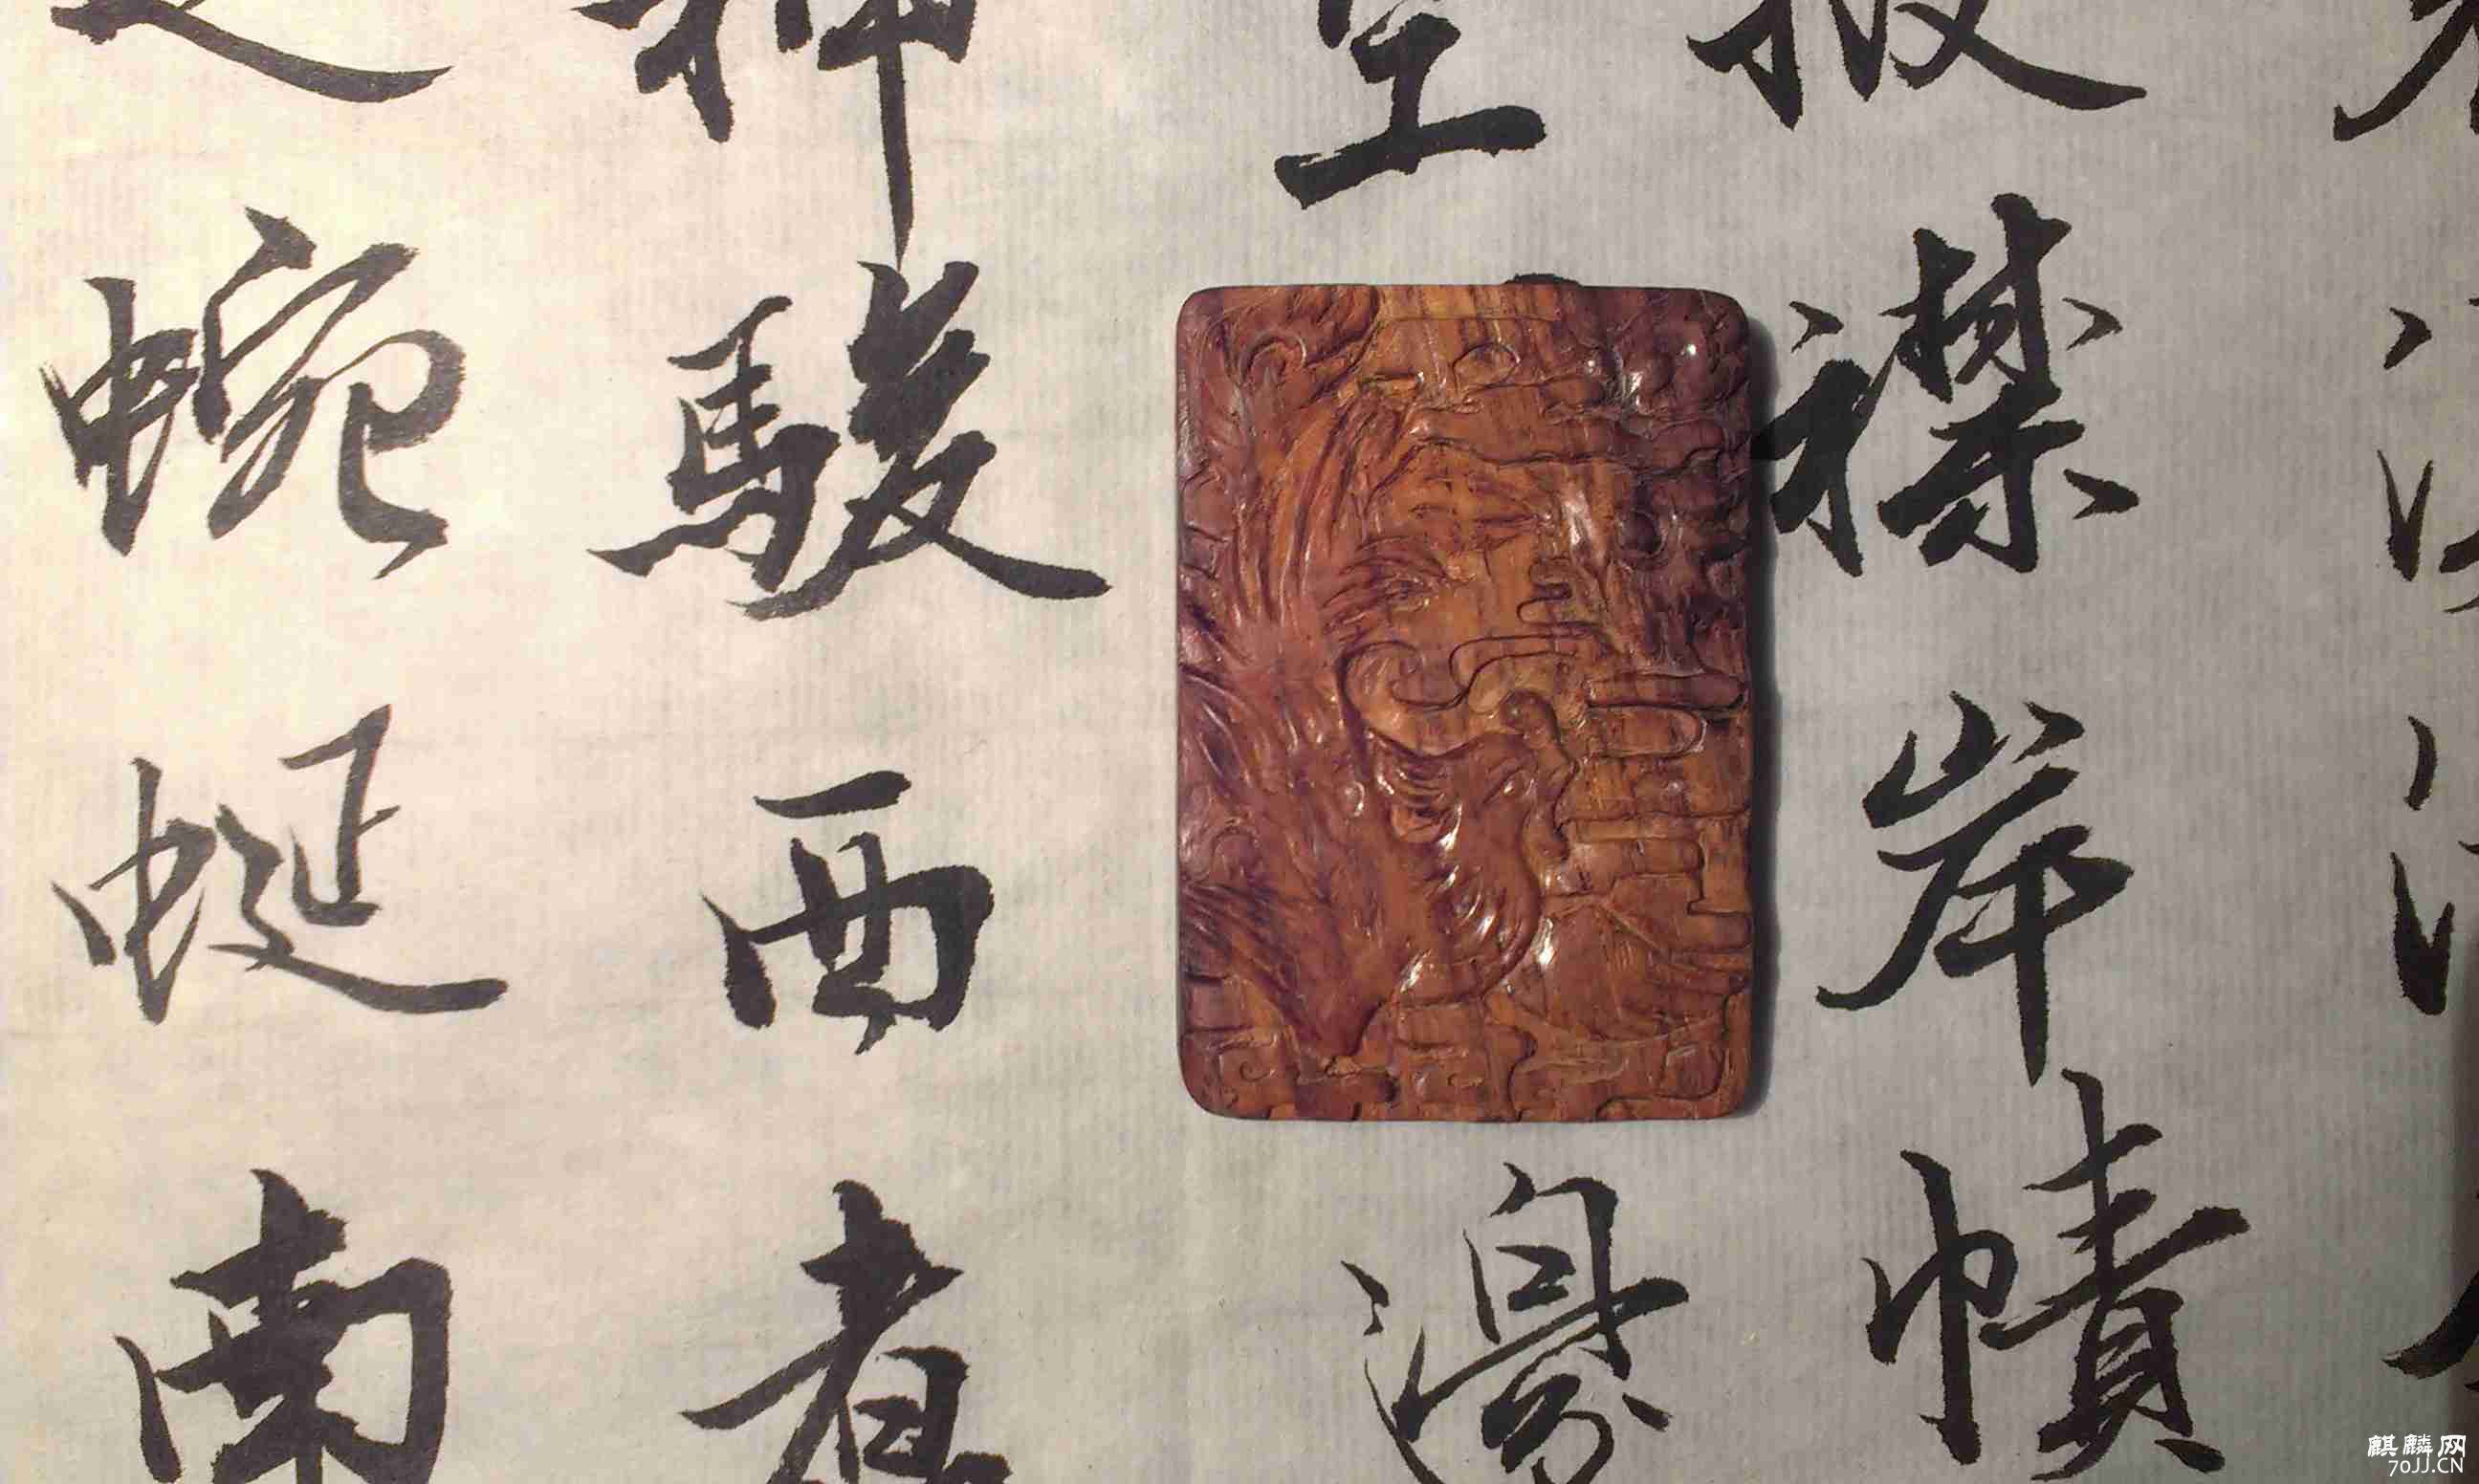 披襟岸幘
空邊
神駿西翥
走蜿蜒南
麒麟网
70JJ.CN